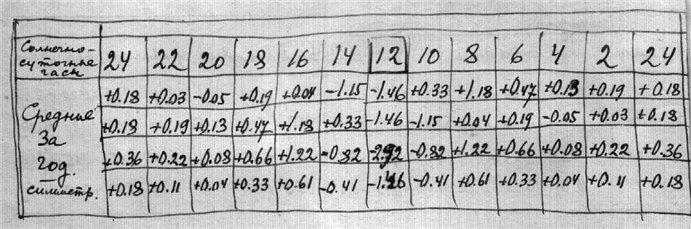 Солнечно-суточные часы 24 22 20 18 16 14 12 10 8 6 4 2 24
Средние за год. симметр.
+0.18 +0.03 -0.05 +0.19 +0.04 -1.15 -1.46 +0.33 +1.18 +0.47 +0.13 +0.19 +0.18
+0.18 +0.19 +0.13 +0.47 +1.18 +0.33 -1.46 -1.15 +0.04 +0.19 -0.05 +0.03 +0.18
+0.36 +0.22 +0.08 +0.66 +1.22 -0.82 -2.92 -0.82 +1.22 +0.66 +0.08 +0.22 +0.36
+0.18 +0.11 +0.04 +0.33 +0.61 -0.41 -1.46 -0.41 +0.61 +0.33 +0.04 +0.11 +0.18